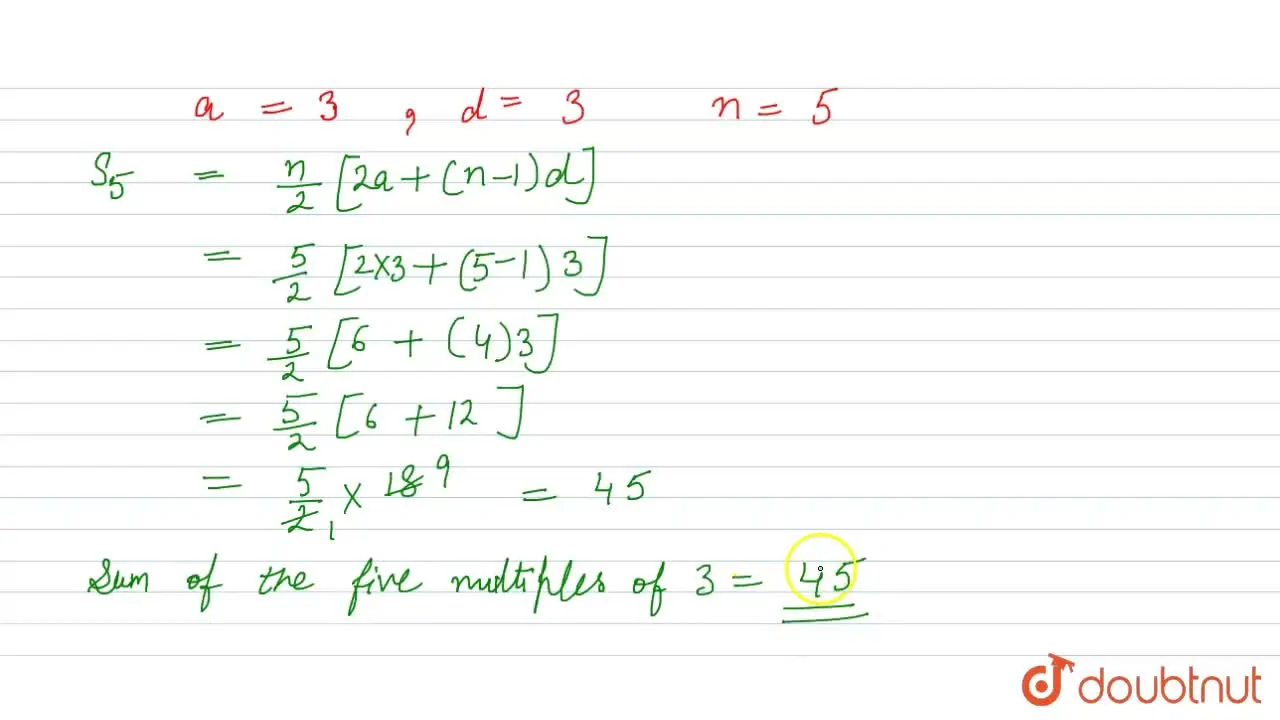 a = 3 , d = 3 n = 5
S₅ = n/2 [2a + (n-1) d]
= 5/2 [2x3 + (5-1) 3]
= 5/2 [6 + (4)3]
= 5/2 [6 + 12]
= 5/2 1 x 18 9 = 45
Sum of the five multiples of 3 = 45
doubtnut